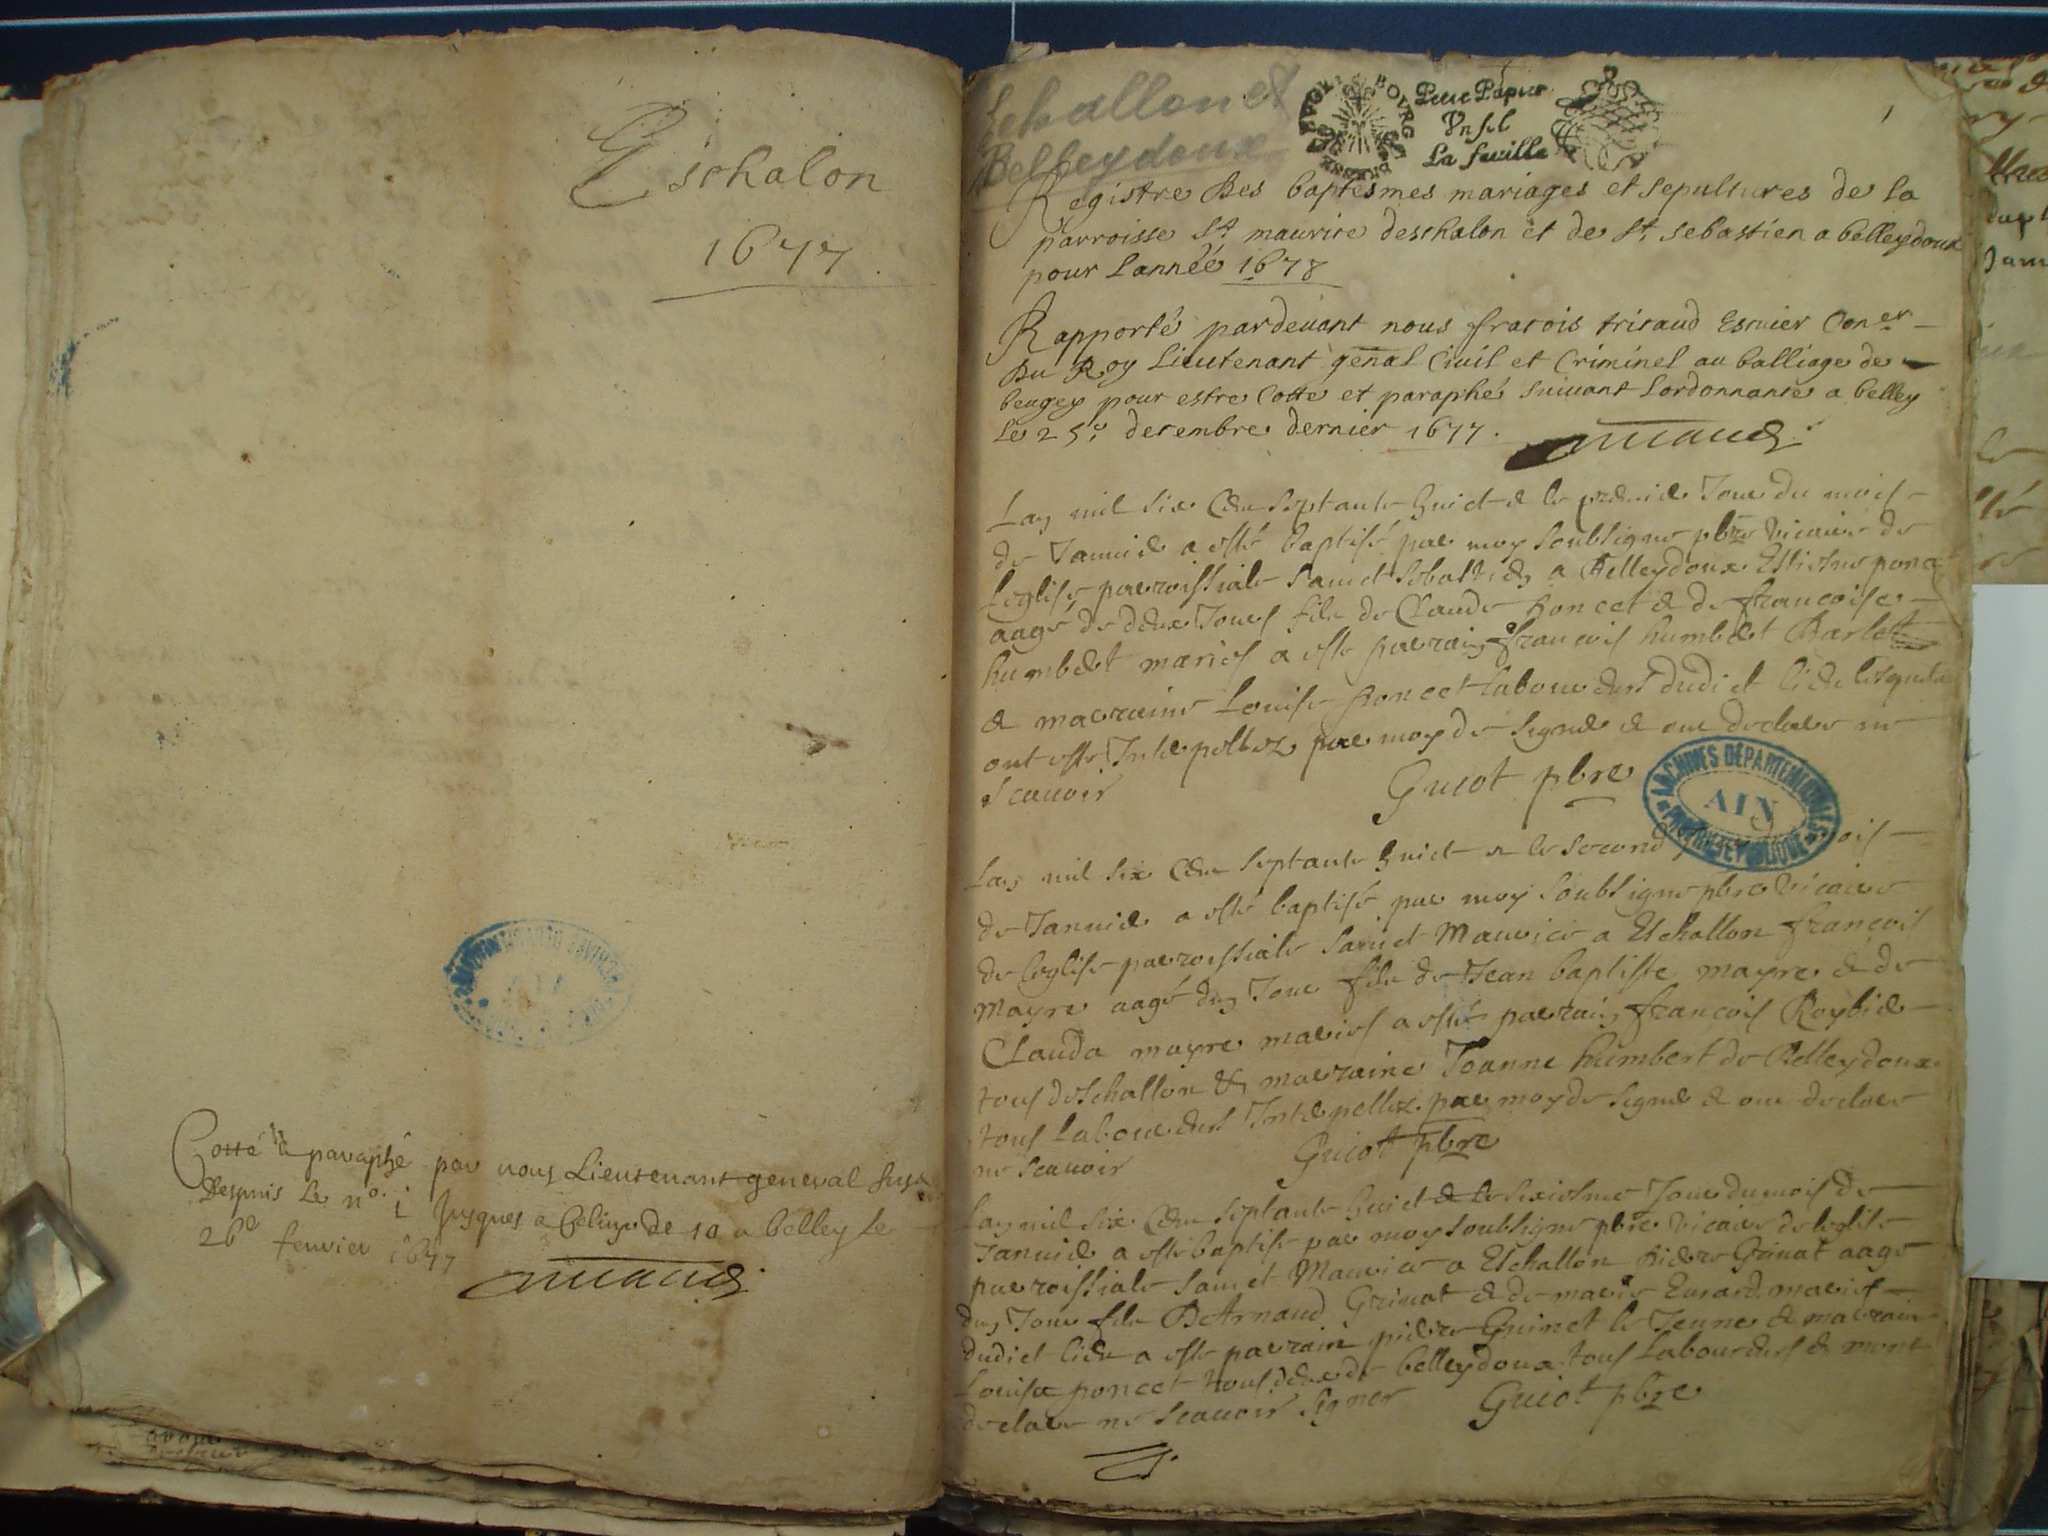 Eschalon
1677
Cotté et paraphé par nous Lieutenant general susd
despuis le no. 1 jusques a celuy de 10 a belley le
26e fenvier 1677
Echallon et
Belleydoux
BOVRG
Petit Papier
Vn sol
La feuille
1
Registre des baptesmes mariages et sepultures de la
parroisse St maurice deschalon et de St sebastien a belleydoux
pour Lannéé 1678
Rapporté pardeuant nous fracois tricaud Escuier Coner
Du Roy Lieutenant genal Ciuil et Criminel au balliage de
beugey pour estre Cotte et paraphé suiuant Lordonnance a belley
le 25e decembre dernier 1677.
Lan mil six Cent septante huict & le premier Jour du mois
de Januier a esté baptisé par moy soubsigne pbre vicaire de
Leglise parroissiale sainct sebastien a Belleydoux Estiene ponce
aagé de deux Jours fils de Claude poncet & de francoise
humbert mariés a esté parrain francois humbert Barlet
& marraine Louise poncet laboureurs dudict lieu lesquels
ont esté Interpellez par moy de signer & ont declaré ne
scauoir Guiot pbre
ARCHIVES DÉPARTEMENTALES
AIN
Lan mil six Cent septante huict & le second mois
de Januier a esté baptisé par moy soubsigne pbre vicaire
de leglise parroissiale sainct Maurice a Eschallon françois
Mayre aagé dun Jour fils de Jean baptiste mayre & de
Clauda mayre mariés a esté parrain francois Roybier
tous deschallon & marraine Jeanne humbert de Belleydoux
tous Laboureurs Interpellez par moy de signer & ont declaré
ne scauoir Guiot pbre
Lan mil six Cent septante huict & le sixiesme Jour du mois de
Januier a esté baptisé par moy soubsigne pbre vicaire de leglise
parroissiale sainct Maurice a Eschallon pierre Grinat aagé
dun Jour fils DArnaud Grinat & de marie Eurard mariés
dudict lieu a esté parrain pierre Guinet le Jeune & marraine
Louise poncet tous deux de belleydoux tous Laboureurs & mont
declaré ne scauoir signer Guiot pbre